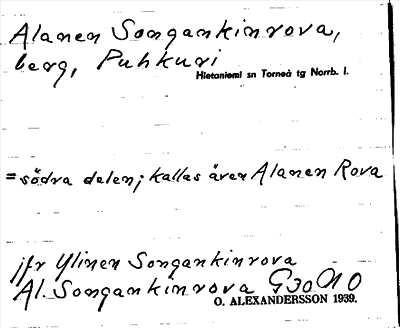 Alanen Songankinrova,
berg, Puhkuri
Hietaniemi sn Torneå tg Norrb. l.
= södra delen; kallas även Alanen Rova
jfr Ylinen Songankinrova
Al. Songankinrova G30 N O
O. ALEXANDERSSON 1939.